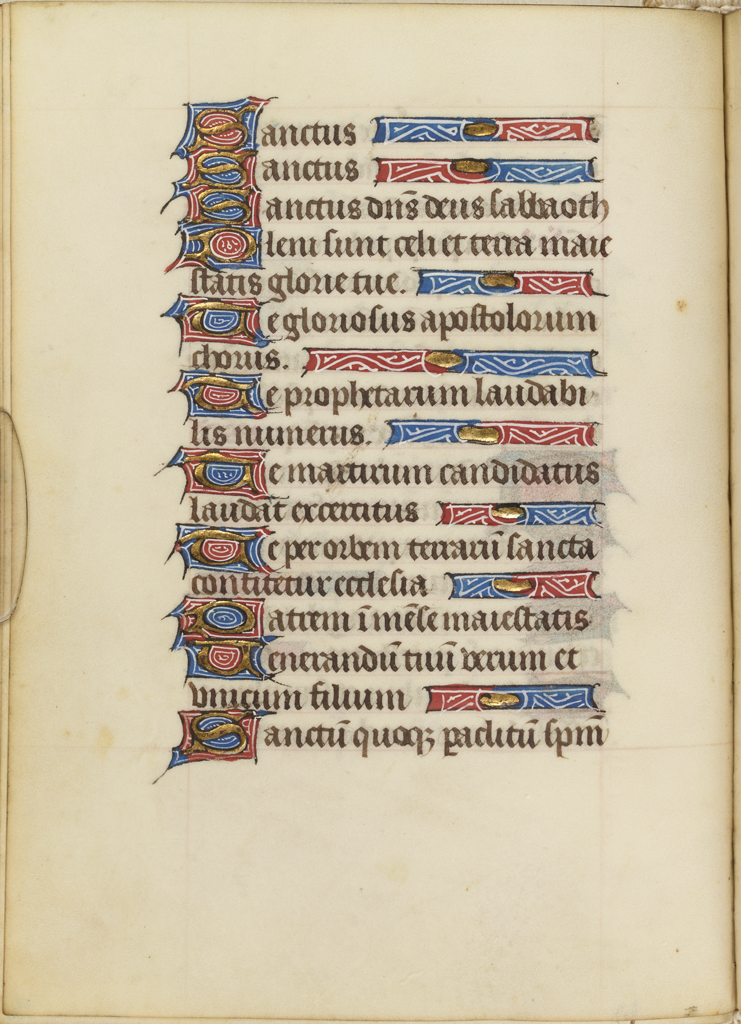 Sanctus
Sanctus
Sanctus dn̄s deus sabbaoth
Pleni sunt celi et terra maie
statis glorie tue.
Te gloriosus apostolorum
chorus.
Te prophetarum laudabi
lis numerus.
Te martirum candidatus
laudat excercitus
Te per orbem terrarū sancta
confitetur ecclesia
Patrem īmēse maiestatis
Venerandū tuū verum et
vnicum filium
Sanctū quoqꝫ ꝑaclitū sp̄m